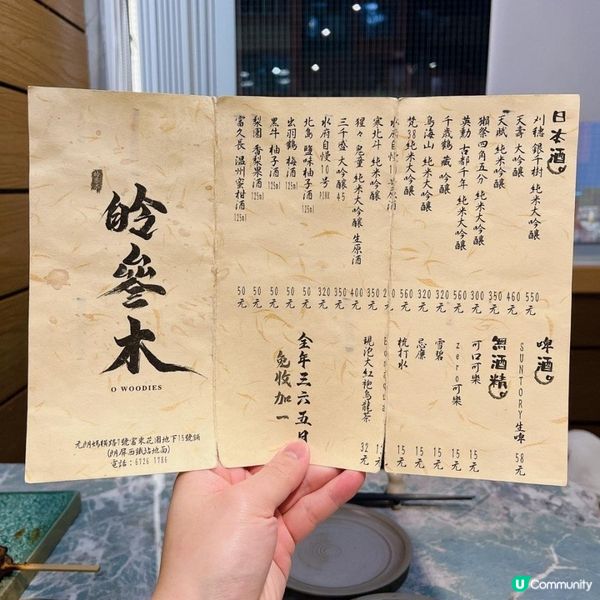 日本酒
刈穗 銀千樹 純米大吟釀 550元
天壽 大吟釀 460元
天賦 純米吟釀 350元
獺祭 四角五分 純米大吟釀 300元
英勳 古都千年 純米吟釀 560元
千歲鶴 藏 吟釀 320元
鳥海山 純米大吟釀 320元
梵38 純米大吟釀 560元
水府自慢 原酒
寒北斗 純米吟釀 350元
猩々 鬼童 純米大吟釀 生原酒 400元
三千盛 大吟釀 45 350元
水府自慢10号 PINK 320元
北島 鹽味柚子酒 125ml 50元
出羽鶴 梅酒 125ml 50元
黑牛 柚子酒 125ml 50元
梨園 香梨果酒 125ml 50元
富久長 温州蜜柑酒 125ml 50元
啤酒
SUNTORY生啤 58元
無酒精
可口可樂 15元
zero可樂 15元
雪碧 15元
忌廉 15元
梳打水 15元
現泡大紅袍烏龍茶 32元
全年三六五日
免收加一
皊參木
O WOODIES
元朗媽橫路1號富來花園地下15號舖
(朗屏西鐵站地面)
電話：6726 1786
U Community